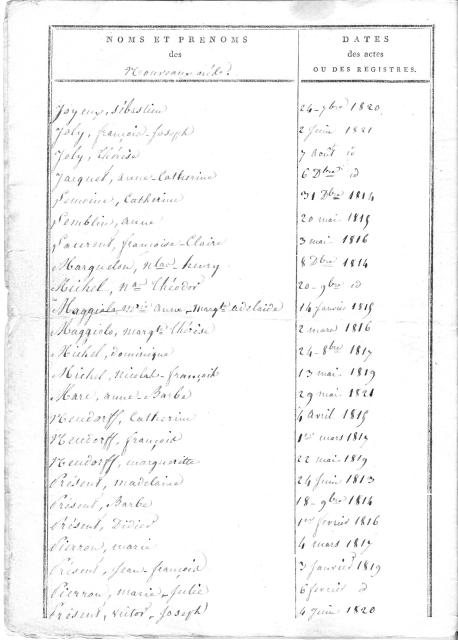 NOMS ET PRENOMS
des
Nouveaux nés.
DATES
des actes
OU DES REGISTRES.
Joyeux, Sébastien 24 - 9bre 1820
Joly, françois-Joseph 2 Juin 1821
Joly, thérèse 7 Août id
Jacquet, anne-Catherine 6 Dbre id
Lemoine, Catherine 31 Dbre 1814
Lemblin, anne 20 mai 1815
Laurent, françoise-Claire 3 mai 1816
Marquedon, Nlas henry 8 Dbre 1814
Michel, Nas théodor 20 - 9bre id
Maggiolo, mrie anne-margte adelaïde 14 Janvier 1815
Maggiolo, margte thérèse 2 mars 1816
Michel, dominique 24 - 8bre 1817
Michel, Nicolas-françois 13 mai 1819
Marc, anne-Barbe 29 mai 1821
Neudorff, Catherine 4 Avril 1815
Neudorff, françois 1er mars 1817
Neudorff, margueritte 22 mai 1819
Présent, madelaine 24 Juin 1813
Présent, Barbe 18 - 9bre 1814
Présent, Didier 1er fevrier 1816
Pierron, marie 4 mars 1817
Présent, Jean-françois 3 Janvier 1819
Pierron, marie-Julie 6 fevrier id
Présent, victor-Joseph 4 Juin 1820